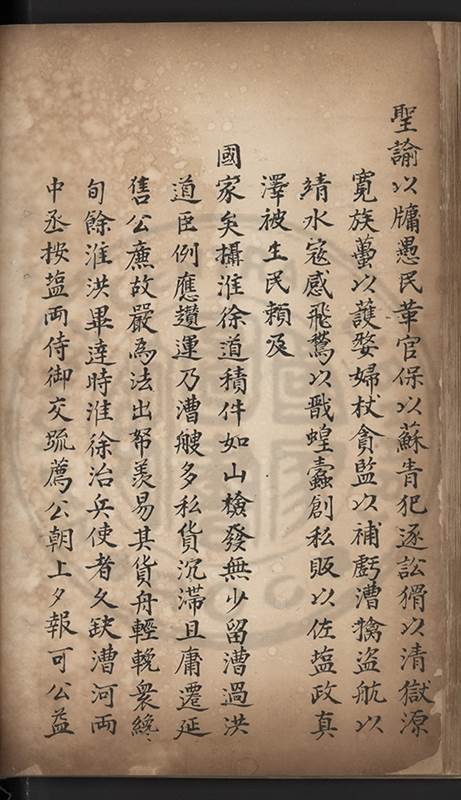 聖諭以牖愚民革官保以蘇青犯逐訟猾以清獄源
寬族蠹以護嫠婦杖貪監以補虧漕擒盜航以
靖水寇感飛鶩以戩蝗蠹創私販以佐塩政真
澤被生民賴及
國家矣攝淮徐道積件如山檢發無少留漕過洪
道臣例應趲運乃漕艘多私貨沉滯且庸遷延
售公廉故嚴為法出帑羡易其貨舟輕輓衆纔
旬餘淮洪畢達時淮徐治兵使者久缺漕河兩
中丞按塩両侍御交疏薦公朝上夕報可公益